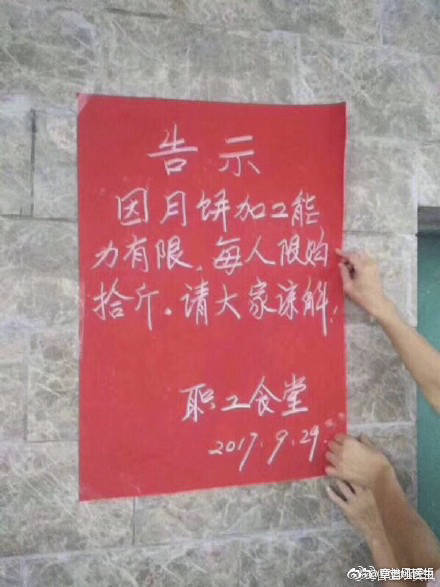 告示
因月饼加工能
力有限，每人限购
拾斤。请大家谅解！
职工食堂
2017.9.29